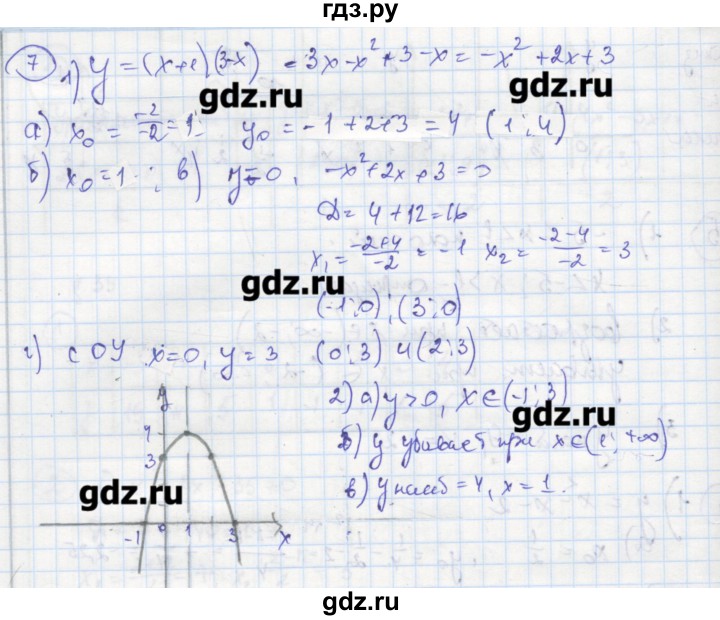 гдз.ру
7 1) y = (x+1)(3-x) = 3x - x² + 3 - x = -x² + 2x + 3
gdz.ru gdz.ru
а) x₀ = -2/-2 = 1; y₀ = -1+2+3 = 4 (1; 4)
б) x₀ = 1; в) y=0, -x²+2x+3=0
D = 4+12=16
x₁ = -2+4/-2 = -1 x₂ = -2-4/-2 = 3
gdz.ru
(-1;0); (3;0)
г) с OY x=0, y=3 (0;3) и (2;3)
gdz.ru
2) а) y>0, x∈(-1; 3)
б) y убывает при x∈(1; +∞)
в) y наиб = 4, x = 1.
gdz.ru
y
4
3
-1 0 1 3 x
gdz.ru